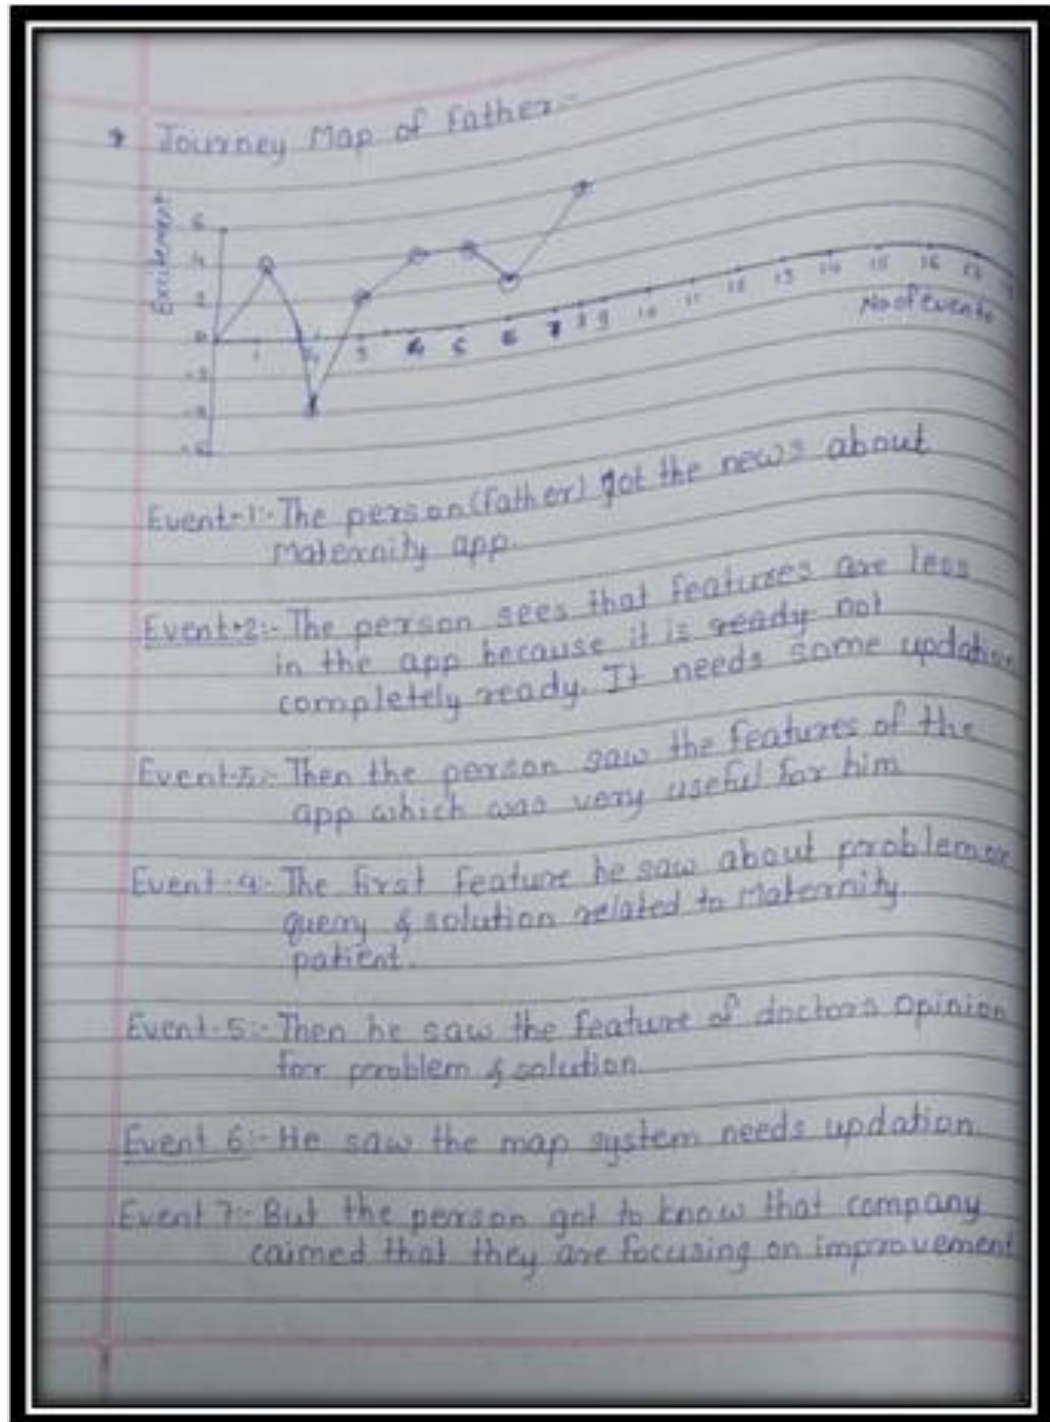 * Journey Map of Father:-
Excitement
6
4
2
0
-2
-4
-6
1 2 3 4 5 6 7 8 9 10 11 12 13 14 15 16 17
No of events
Event-1:- The person (father) got the news about
Maternity app.
Event-2:- The person sees that features are less
in the app because it is ready not
completely ready. It needs some updation
Event-3:- Then the person saw the features of the
app which was very useful for him
Event-4:- The first feature he saw about problem or
query & solution related to Maternity
patient.
Event-5:- Then he saw the feature of doctors opinion
for problem & solution.
Event 6:- He saw the map system needs updation
Event 7:- But the person got to know that company
caimed that they are focusing on improvement